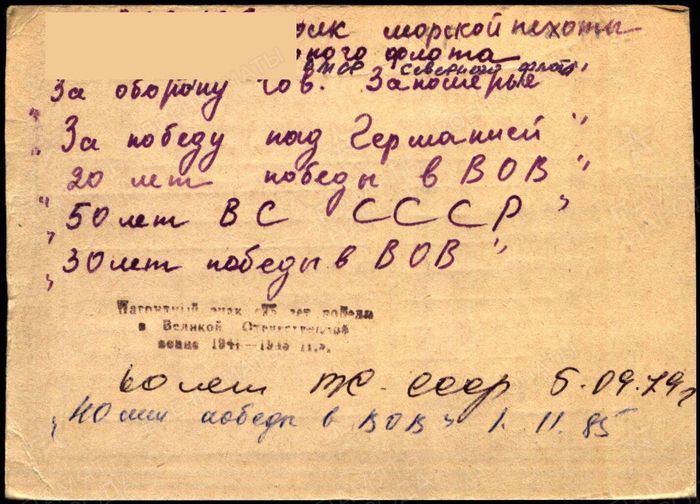 морской пехоты
флота
"За оборону Сов. Заполярье"
"За победу над Германией"
20 лет победы в ВОВ"
"50 лет ВС СССР"
"30 лет победы в ВОВ"
Нагрудный знак «25 лет победы
в Великой Отечественной
войне 1941—1945 гг.».
60 лет ВС СССР 5.09.79г
"40 лет победы в ВОВ" 1.11.85